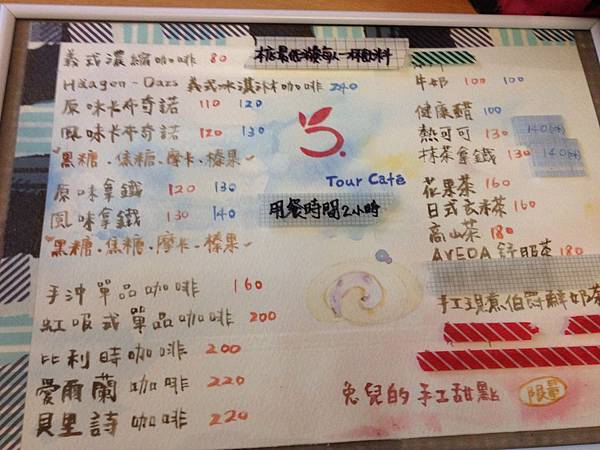 義式濃縮咖啡 80
Häagen-Dazs 義式冰淇淋咖啡 240
原味卡布奇諾 110 120
風味卡布奇諾 120 130
黑糖、焦糖、摩卡、榛果
原味拿鐵 120 130
風味拿鐵 130 140
黑糖、焦糖、摩卡、榛果
手沖單品咖啡 160
虹吸式單品咖啡 200
比利時咖啡 200
愛爾蘭咖啡 220
貝里詩咖啡 220
本店最低消費每人一杯飲料
Tour Café
用餐時間2小時
牛奶 100 100
健康醋 100
熱可可 130 140(冰)
抹茶拿鐵 130 140(冰)
花果茶 160
日式玄米茶 160
高山茶 180
AVEDA 舒服茶 180
手工現煮伯爵鮮奶茶
兔兒的手工甜點 限量